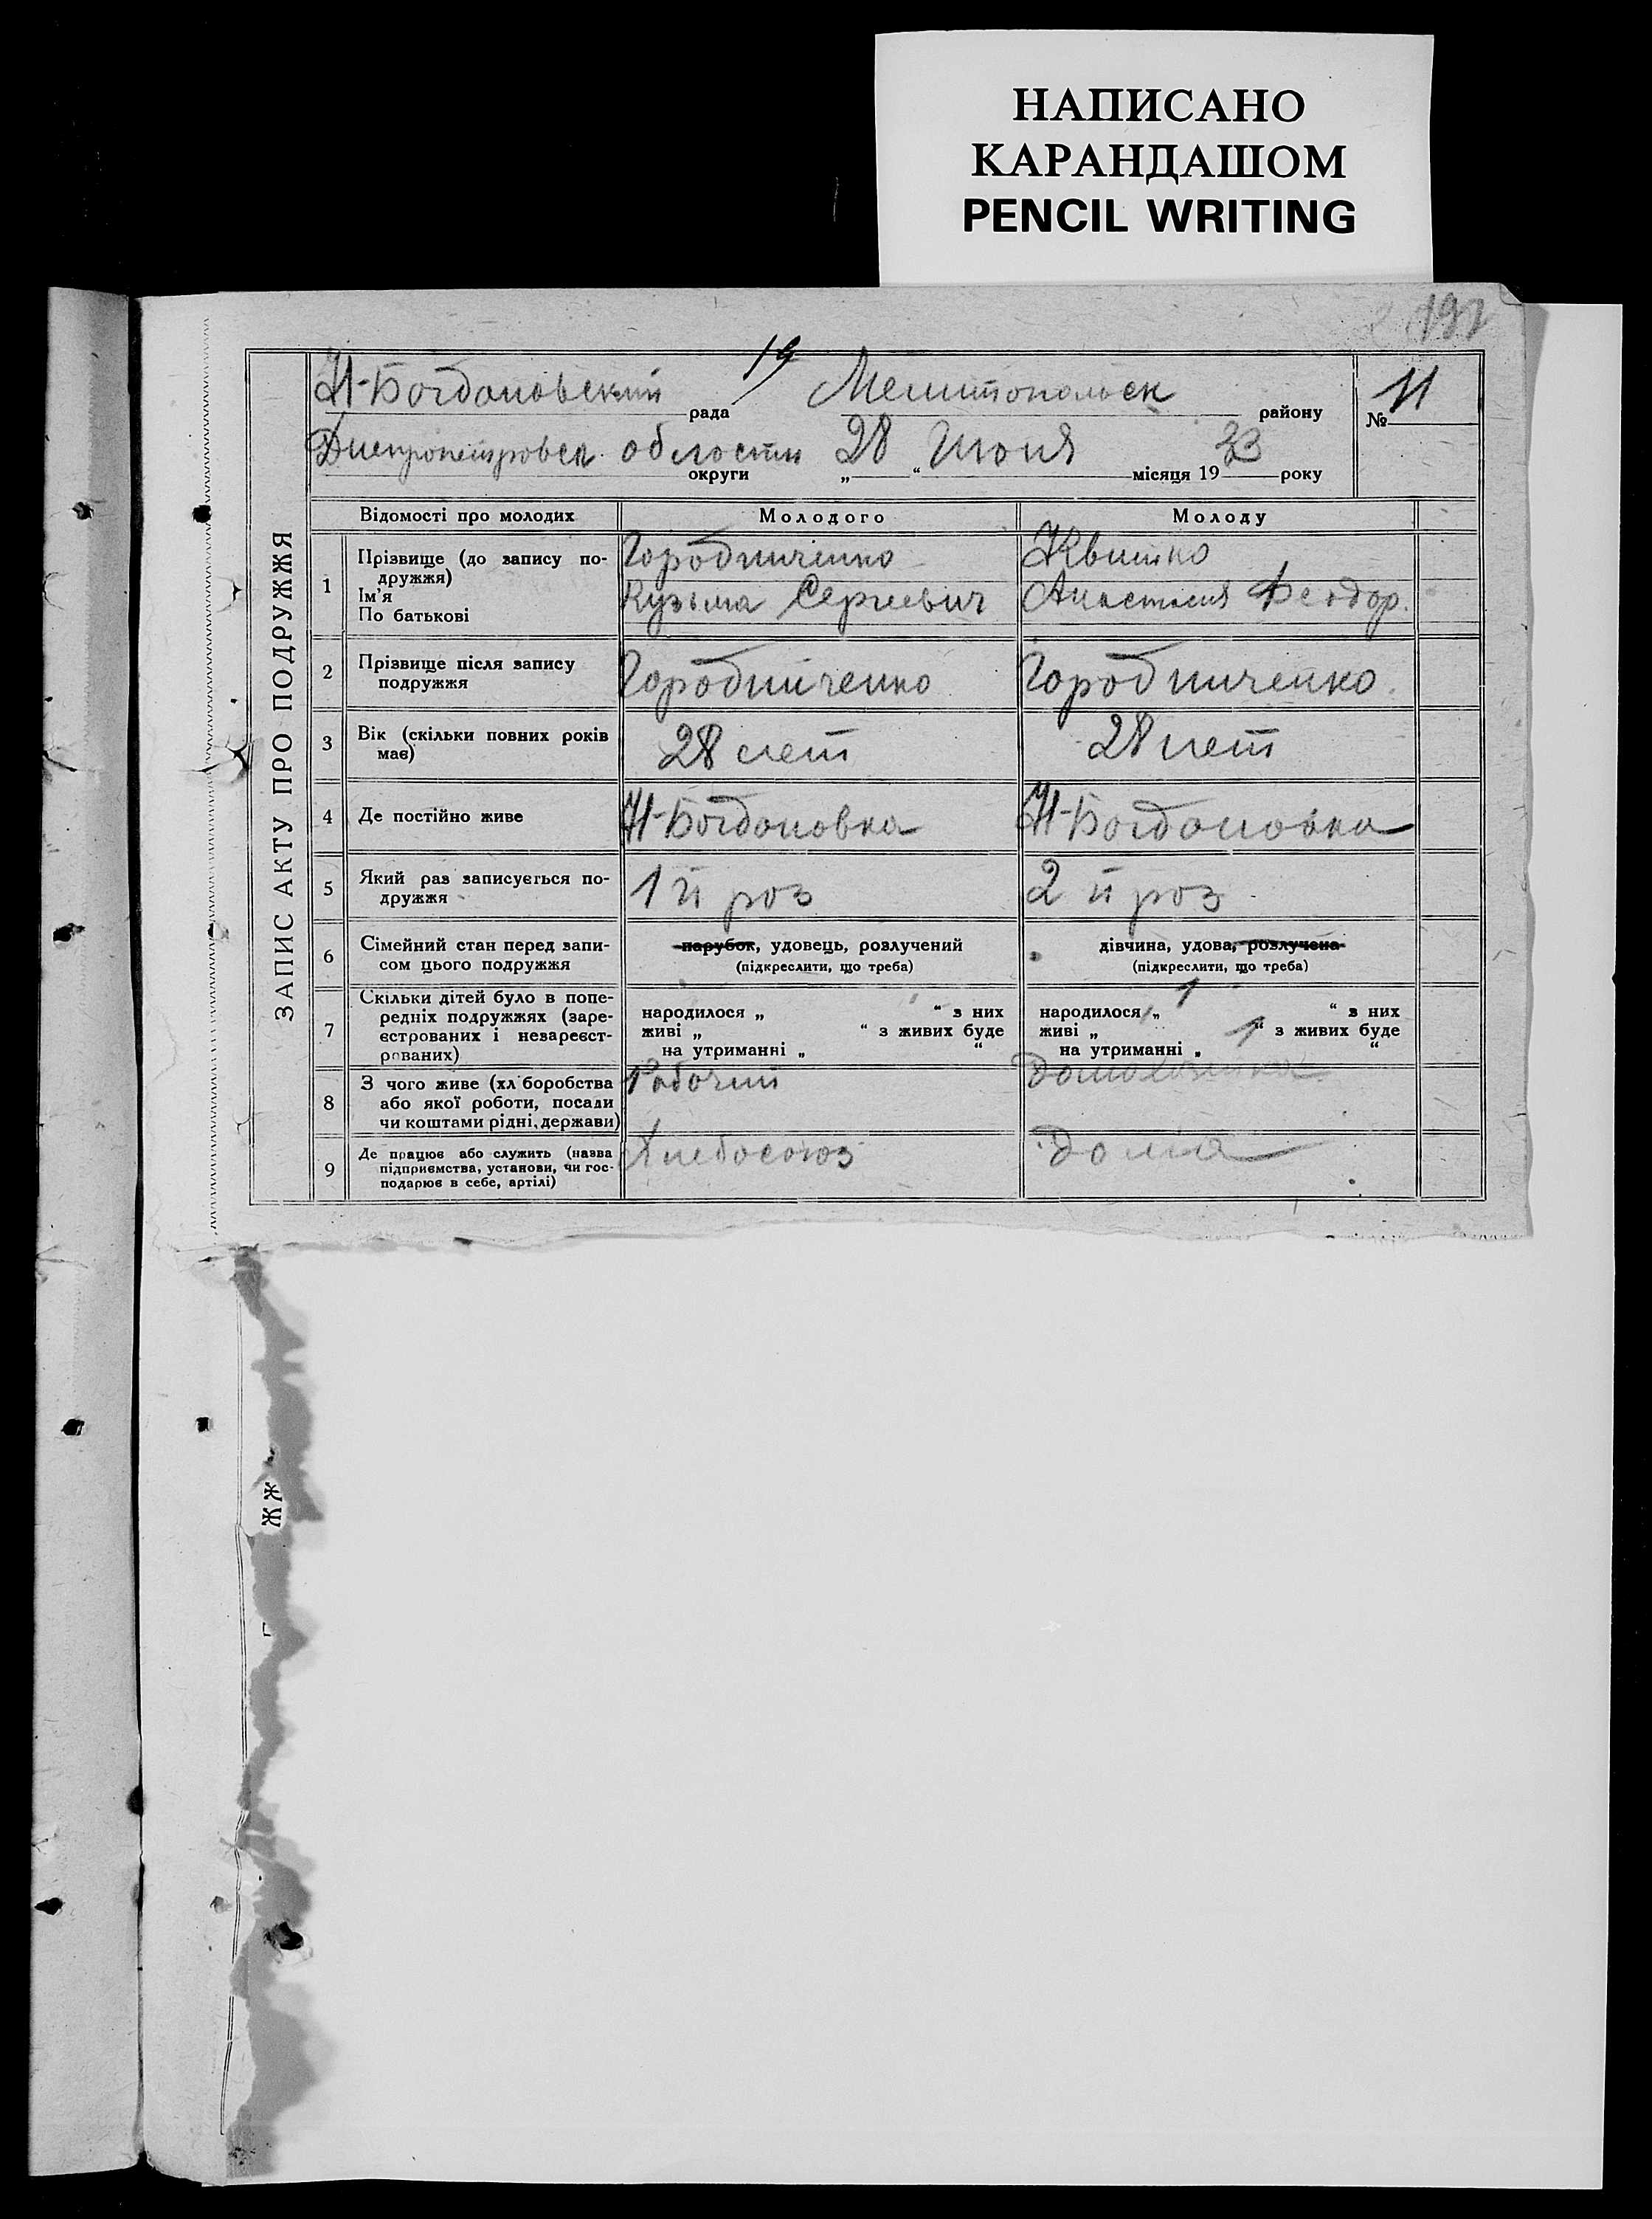 НАПИСАНО
КАРАНДАШОМ
PENCIL WRITING
191
19
Н-Богдоновский рада Мелитопольск району № 11
Днепропетровск области округи „ 28 “ Июня місяця 19 33 року
ЗАПИС АКТУ ПРО ПОДРУЖЖЯ
Відомості про молодих Молодого Молоду
1 Прізвище (до запису по-
дружжя)
Ім'я
По батькові
Городниченко
Кузьма Сергеевич
Квитко
Анастасия Феодор.
2 Прізвище після запису
подружжя
Городниченко
Городниченко.
3 Вік (скільки повних років
має)
28 лет
28 лет
4 Де постійно живе
Н-Богдоновка
Н-Богдоновка
5 Який раз записується по-
дружжя
1 й роз
2 й роз
6 Сімейний стан перед запи-
сом цього подружжя
парубок, удовець, розлучений
(підкреслити, що треба)
дівчина, удова, розлучена
(підкреслити, що треба)
7 Скільки дітей було в попе-
редніх подружжях (заре-
єстрованих і незареєст-
рованих)
народилося „ “ з них
живі „ “ з живих буде
на утриманні „ “
народилося „ 1 “ з них
живі „ 1 “ з живих буде
на утриманні „ “
8 З чого живе (хліборобства
або якої роботи, посади
чи коштами рідні, держави)
Робочий
Домохозяйка
9 Де працює або служить (назва
підприємства, установи, чи гос-
подарює в себе, артілі)
Хлебосоюз
Дома
ЖЖ